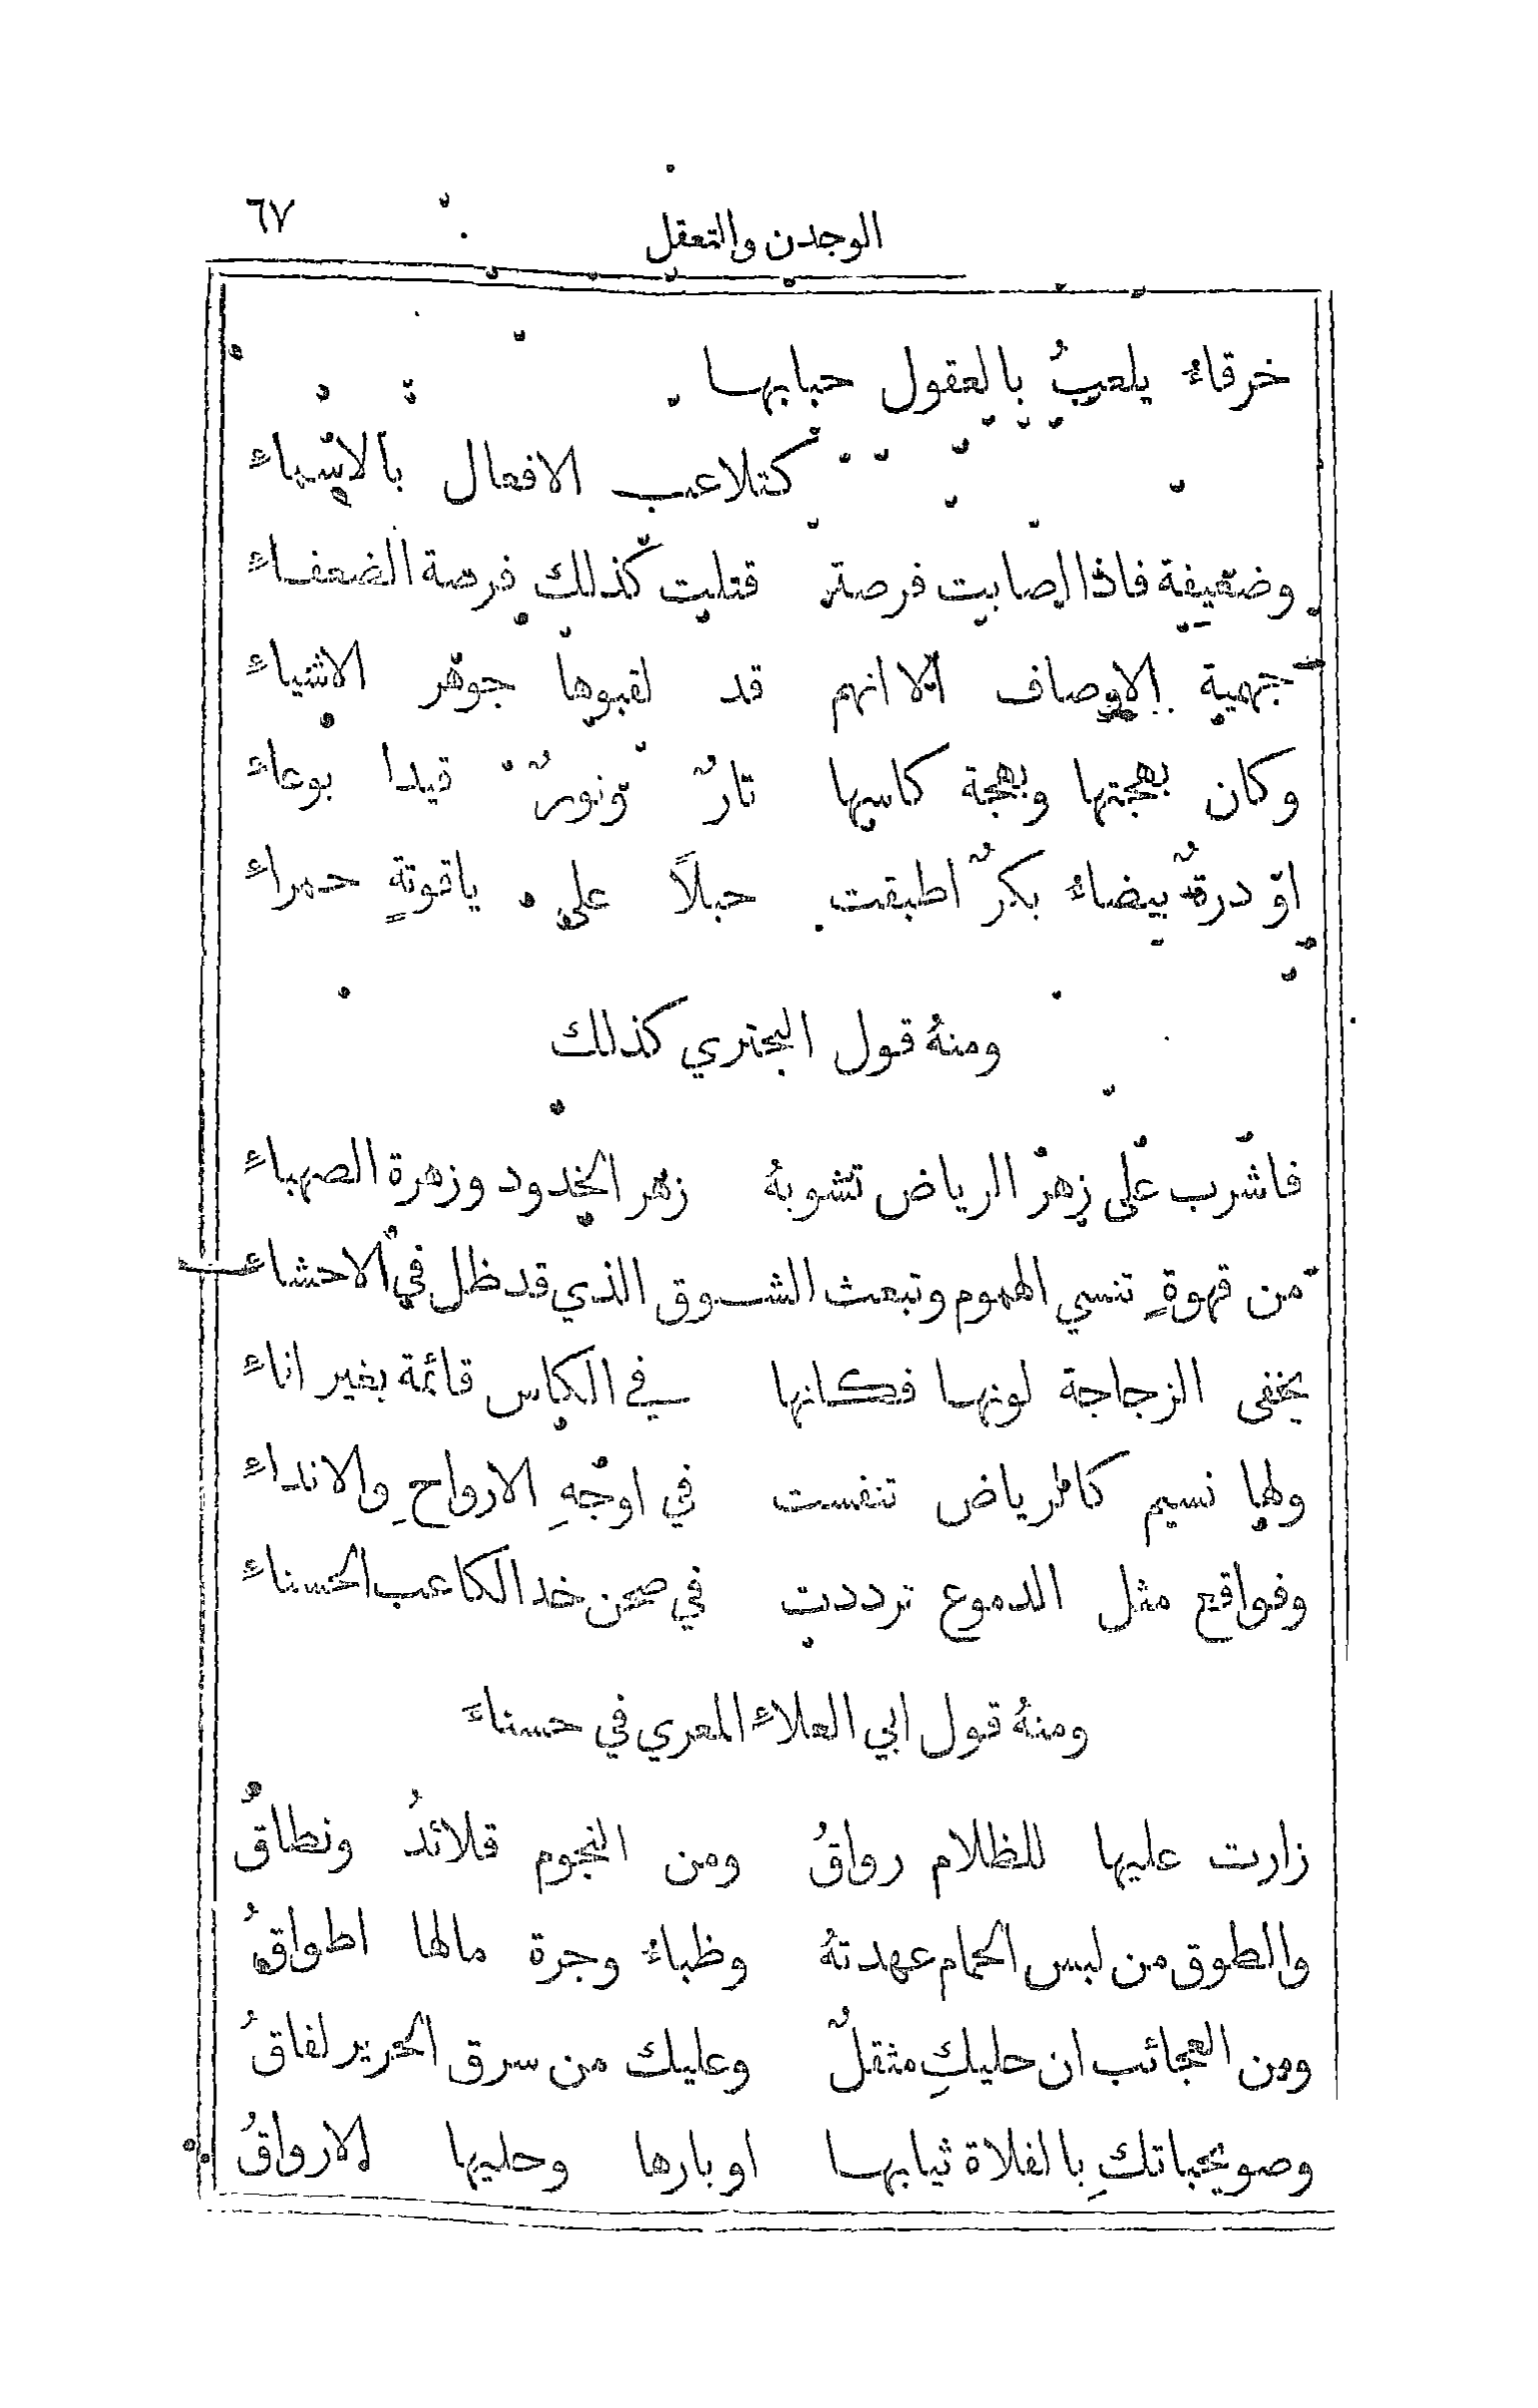 الوجدن والتعقل ٦٧
خرقاءُ يلعبُ بالعقول حبابها
كتلاعب الافعال بالاسماءِ
وضعيفة فاذا اصابت فرصة قتلت كذلك فرصة الضعفاءِ
جهمية الاوصاف الا انهم قد لقبوها جوهر الاشياءِ
وكان بهجتها وبهجة كاسها نارٌ ونورٌ قيدا بوعاءِ
او درةٌ بيضاءُ بكرٌ اطبقت حبلاً على ياقوتةٍ حمراءِ
ومنهُ قول البحتري كذلك
فاشرب على زهر الرياض تشوبهُ زهر الخدود وزهرة الصهباءِ
من قهوةٍ تنسي الهموم وتبعث الشوق الذي قد ظل في الاحشاءِ
يخفى الزجاجة لونها فكانها في الكاس قائمة بغير اناءِ
ولها نسيم كالرياض تنفست في اوجهِ الارواحِ والانداءِ
وفواقع مثل الدموع ترددت في صحن خد الكاعب الحسناءِ
ومنهُ قول ابي العلاءِ المعري في حسناءَ
زارت عليها للظلام رواقُ ومن النجوم قلائدُ ونطاقُ
والطوق من لبس الحمام عهدتهُ وظباءُ وجرة مالها اطواقُ
ومن العجائب ان حليكِ مثقلٌ وعليك من سرق الحرير لفاقُ
وصويحباتكِ بالفلاة ثيابها اوبارها وحليها الارواقُ